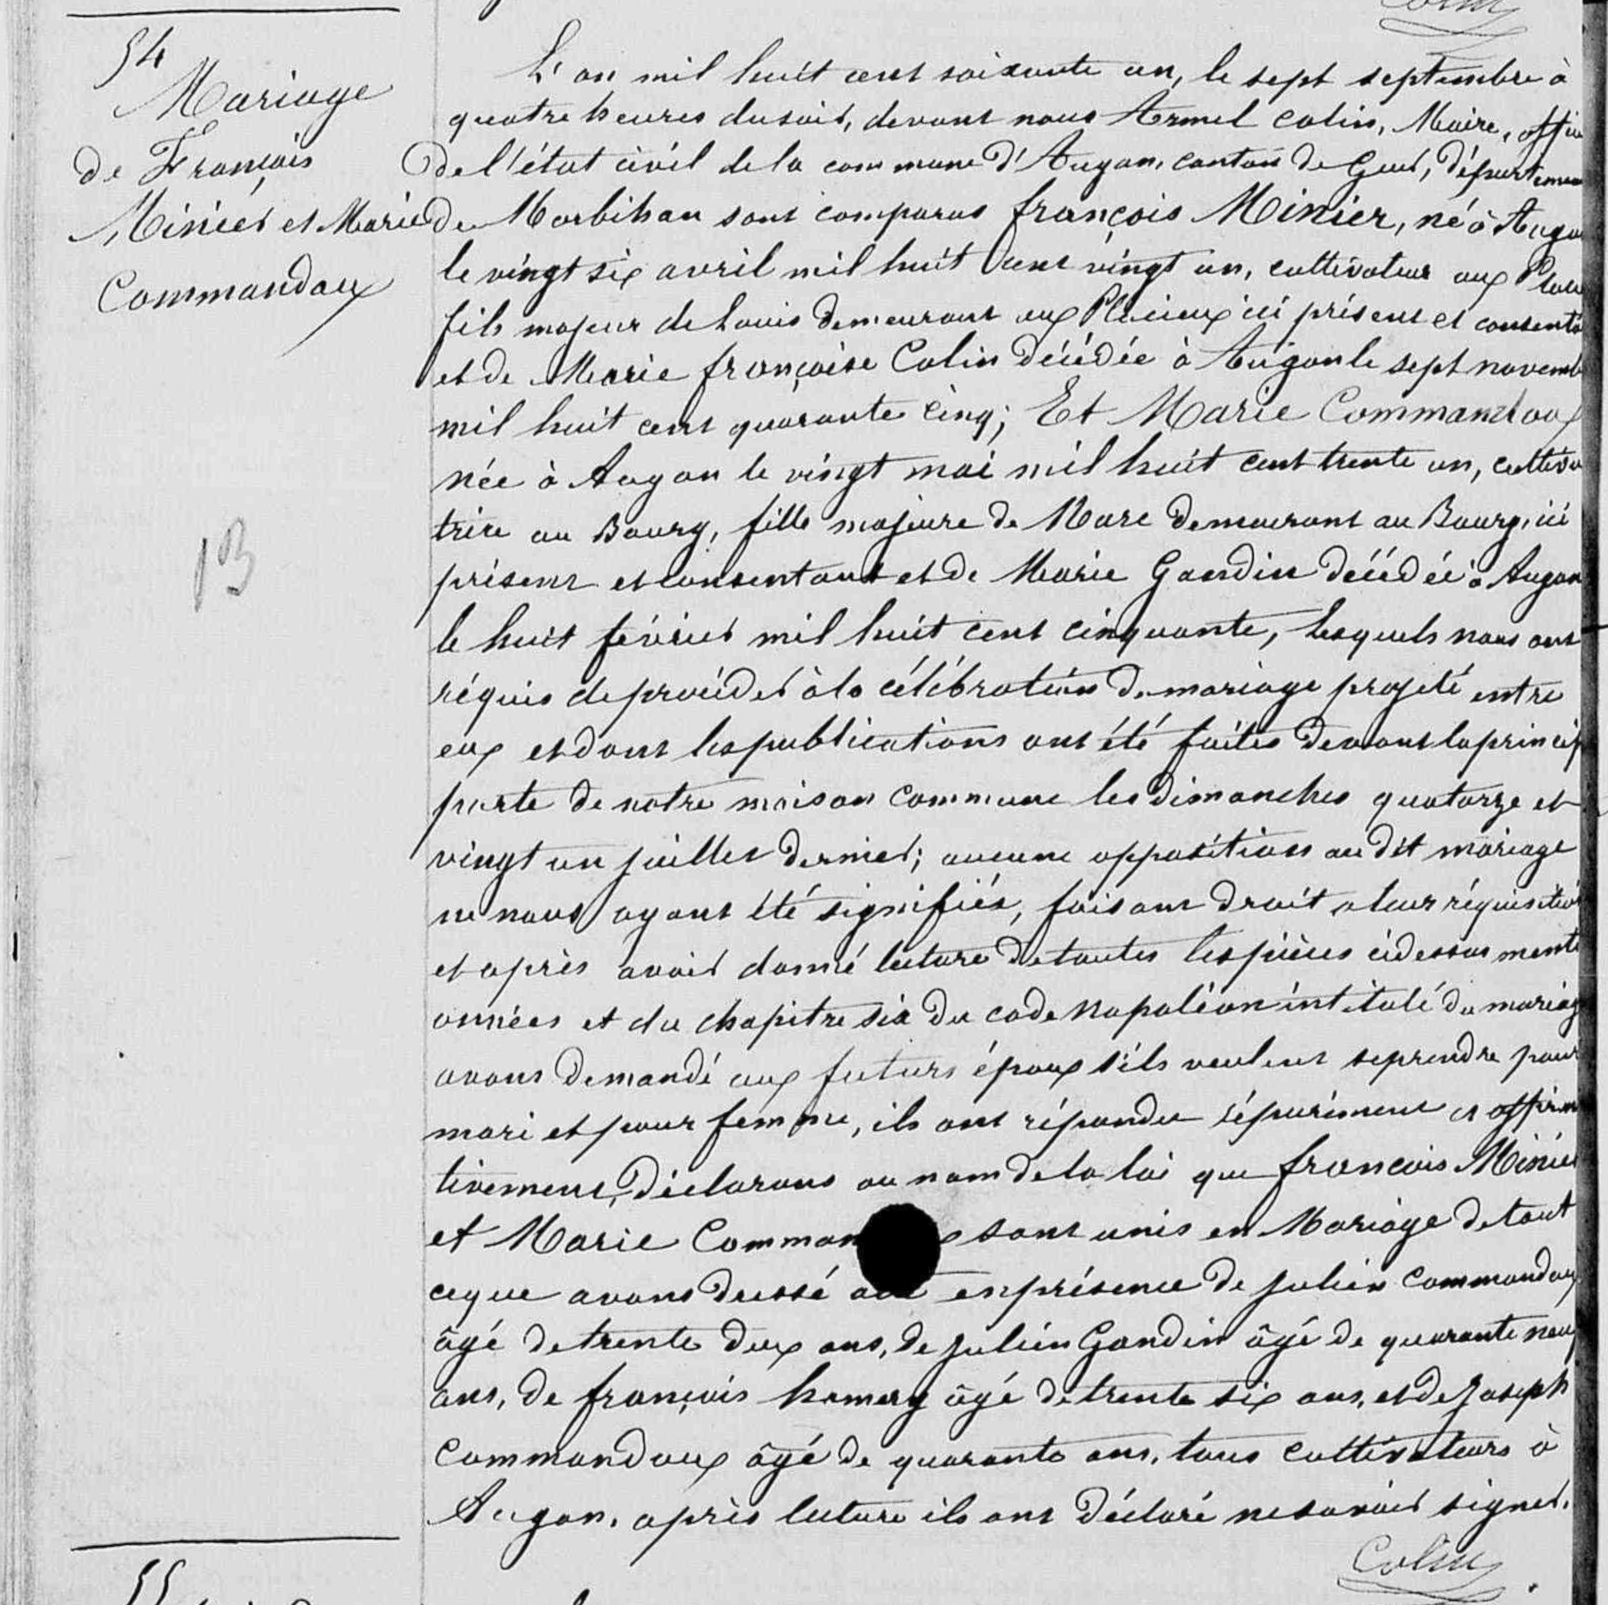 54
Mariage
de François
Minier et Marie
Commandoux
13
L'an mil huit cent soixante un, le sept septembre à
quatre heures du soir, devant nous Armel Colin, Maire, offici
de l'état civil de la commune d'Augan, canton de Guer, département
de Morbihan sont comparus françois Minier, né à Auga
le vingt six avril mil huit cent vingt un, cultivateur aux
fils majeur de Louis demeurant aux ici présent et consentan
et de Marie françoise Colin décédée à Augan le sept novemb
mil huit cent quarante cinq; Et Marie Commandoux
née à Augan le vingt mai mil huit cent trente un, cultiva
trice au Bourg, fille majeure de Marc demeurant au Bourg, ici
présent et consentant et de Marie Gandin décédée à Augan
le huit février mil huit cent cinquante, lesquels nous ont
réquis de procéder à la célébration du mariage projeté entre
eux et dont les publications ont été faites devant la princip
porte de notre maison commune les dimanches quatorze et
vingt un juillet dernier; aucune opposition au dit mariage
ne nous ayant été signifiée, faisant droit a leur réquisition
et après avoir donné lecture de toutes les pièces cidessus menti
onnées et du chapitre six du code Napoléon intitulé du mariage
avons demandé aux futurs époux s'ils veulent se prendre pour
mari et pour femme, ils ont répondu séparément et affirma
tivement, déclarons au nom de la loi que françois Minier
et Marie Comman sont unis en Mariage de tout
ce que avons dressé acte en présence de Julien Commandoux
âgé de trente deux ans, de Julien Gandin âgé de quarante neuf
ans, de françois hamery âgé de trente six ans, et de Joseph
Commandoux âgé de quarante ans, tous cultivateurs à
Augan, après lecture ils ont déclaré ne savoir signer.
Colin
55